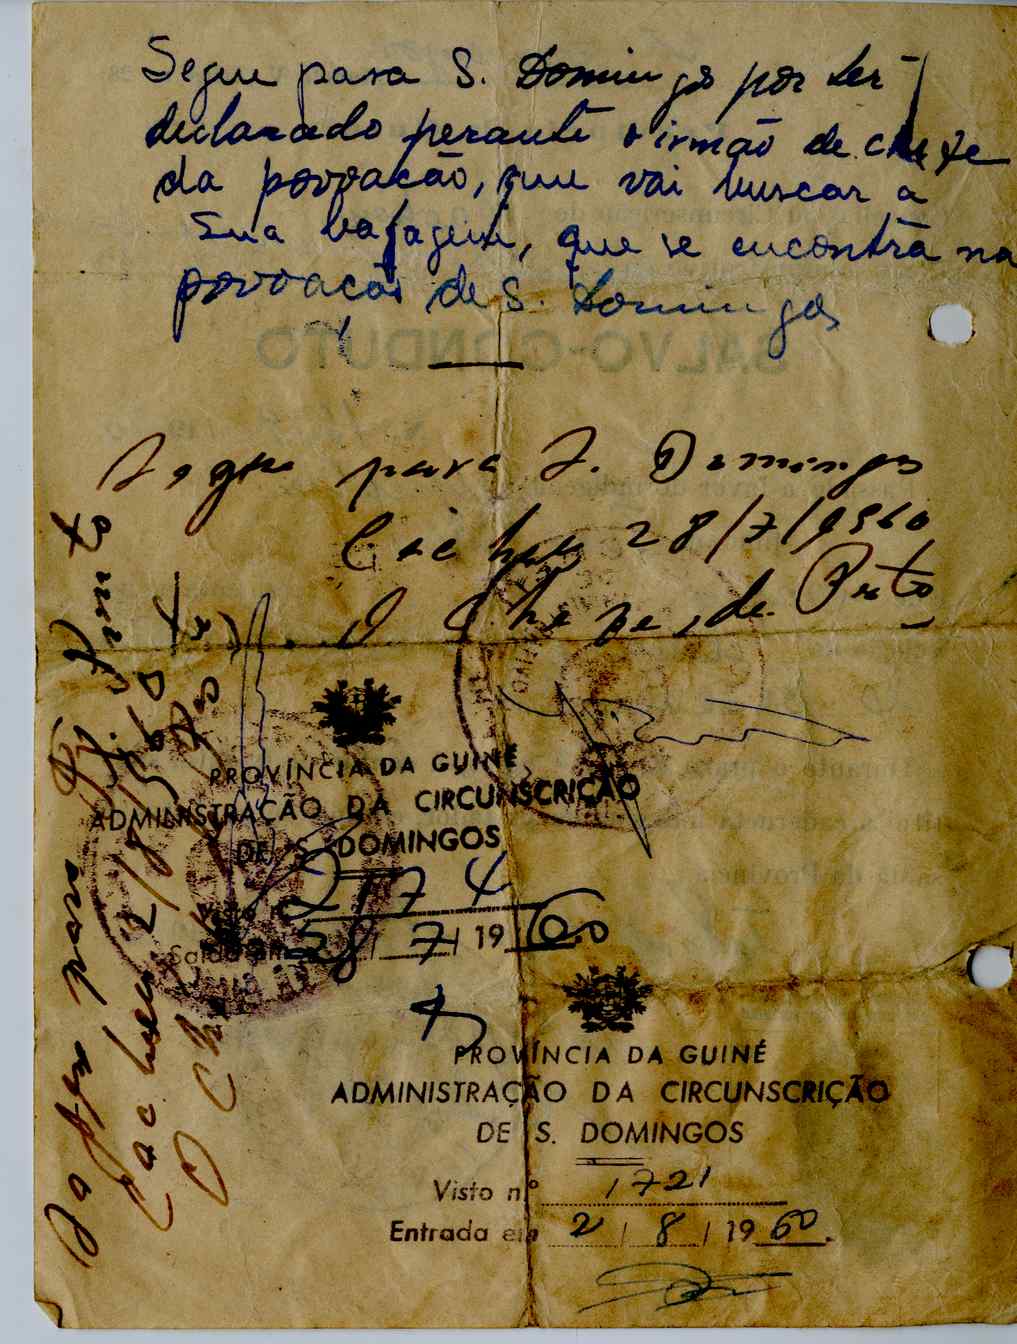 Segue para S. Domingos por ter
declarado perante o irmão de chefe
da povoação, que vai buscar a
sua bagagem, que se encontra na
povoação de S. Domingos
Segue para S. Domingos
Cacheu 28/7/1960
O Chefe de Posto
PROVÍNCIA DA GUINÉ
ADMINISTRAÇÃO DA CIRCUNSCRIÇÃO
DE S. DOMINGOS
2174
Saída em 28/7/1960
PROVÍNCIA DA GUINÉ
ADMINISTRAÇÃO DA CIRCUNSCRIÇÃO
DE S. DOMINGOS
Visto n.º 1721
Entrada em 2/8/1960.
Segue para
Cacheu 2/8/
O Chefe